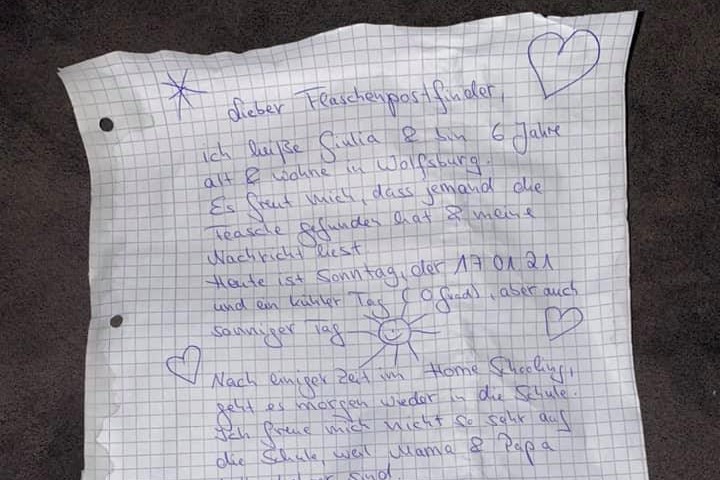 Lieber Flaschenpostfinder,
ich heiße Giulia & bin 6 Jahre
alt & wohne in Wolfsburg.
Es freut mich, dass jemand die
Flasche gefunden hat & meine
Nachricht liest
Heute ist Sonntag, der 17 01 21
und ein kühler Tag (0 Grad), aber auch
sonniger Tag
Nach einiger Zeit im Home Schooling,
geht es morgen wieder in die Schule.
Ich freue mich nicht so sehr auf
die Schule, weil Mama & Papa
sind.